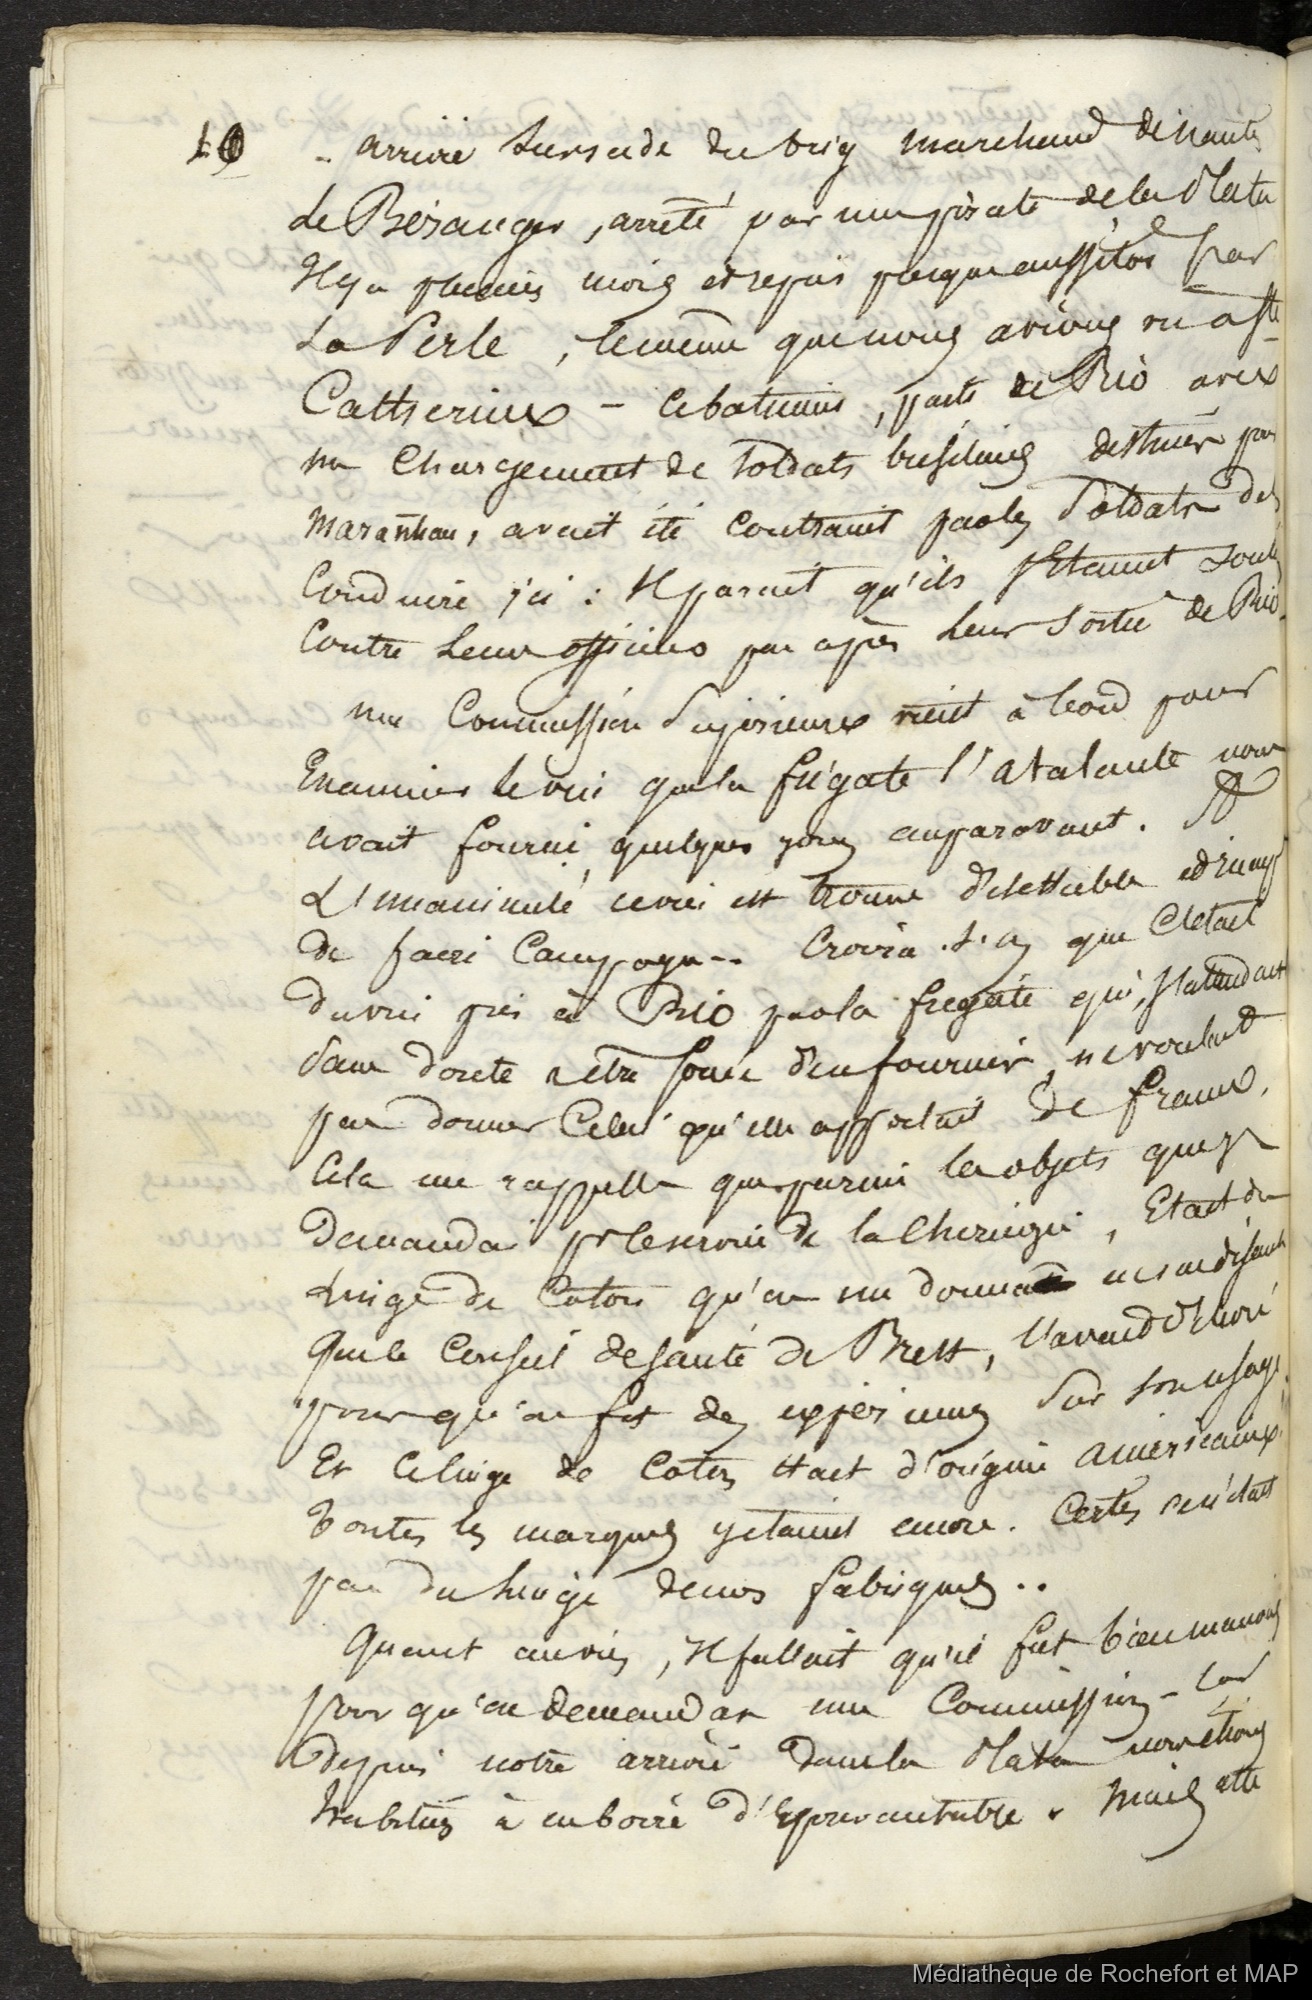 10 - arrivé sur rade du brig marchand de Nantes
Le Béranger, arrêté par un pirate de la Plata
Il y a plusieurs mois et repris presque aussitôt par
La Perle, le même que nous avions vu à Ste
Catherine - Ce batiment, parti de Rio avec
un chargement de soldats bresiliens destinés pour
Maranhau, avait été contraint par les soldats de
Conduire ici : Il parait qu'ils s'etaient
Contre leurs officiers peu après leur sortie de Rio.
une Commission Superieure vient à bord pour
Examiner le vin que la frégate l'atalante nous
avait fourni quelques jours auparavant. A
L'unanimité ce vin est trouvé détestable
de faire Campagne -- Croira-t-on que C'etait
du vin pris à Rio par la fregate qui, s'attendant
sans doute à être d'en fournir, ne voulut
pas donner Celui qu'elle apportait de france.
Cela me rappelle que parmi les objets que je
Demandai pr le service de la Chirurgie, Etait du
Linge de Coton qu'on me donna en me disant
Que le Conseil de santé de Brest, l'avait
pour qu'on fit des experiences sur son usage.
Et Ce linge de Coton était d'origine americaine.
Toutes les marques y etaient encore. Certes ce n'était
pas du linge de nos fabriques ..
Quant au vin, Il fallait qu'il fut bien mauvais
pour qu'on demandat une Commission - Car
depuis notre arrivée dans la Plata nous étions
habitués à en boire d'Epouvantable. Mais cette